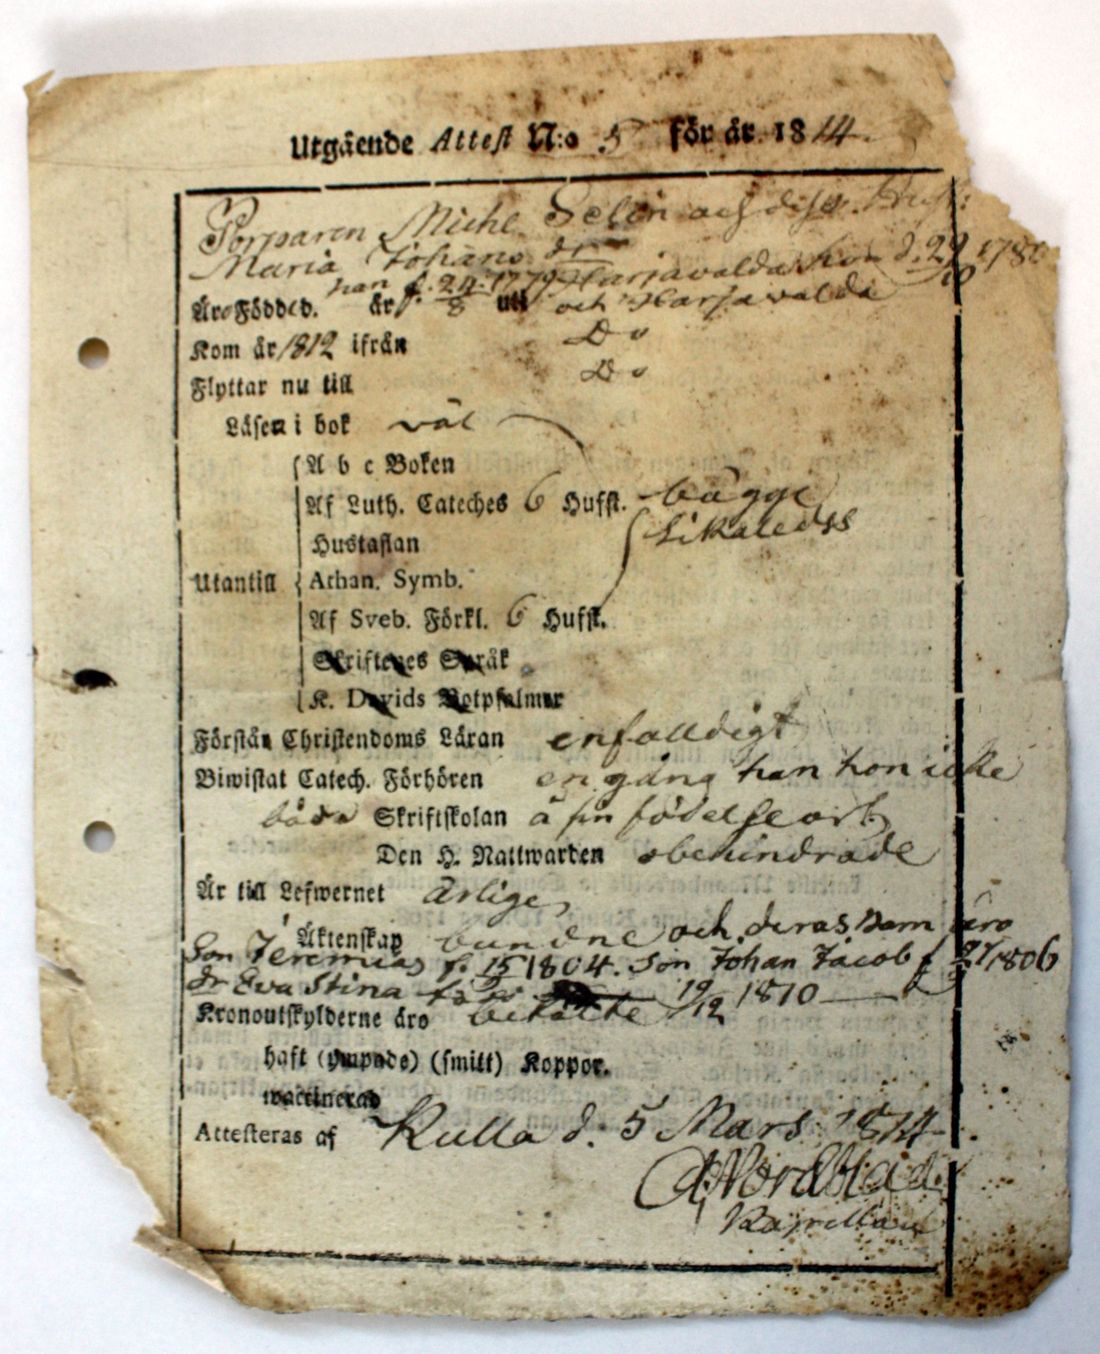 Utgående Attest N:o 5 för år 1814.
Torparen Michel Selin och dess Hust:
Maria Johans dr
han f. 24/8 1779 Harjavalda hon d. 29/10 178
Äro Född d. år uti och Harjavalda
Kom år 1812 ifrån Do
Flyttar nu till Do
Läsen i bok väl
A b c Boken
Af Luth. Cateches 6 Hufst. bägge
Hustaflan likaledes
Utantill Athan. Symb.
Af Sveb. Förkl. 6 Hufst.
Skriftenes Språk
K. Davids Botpsalmer
Förstån Christendoms Läran enfalldigt
Biwistat Catech. Förhören en gång han hon icke
båda Skriftskolan å sin födelse ort
Den H. Nattwarden obehindrade
Är till Lefwernet ärlige,
Äktenskap bundne och deras barn äro
Son Jeremias f. 15 1804. Son Johan Jacob f 1806
dr Eva Stina 19/12 1810
Kronoutskylderne äro betalte
haft (ympade) (smitt) Koppor.
waccinerad
Attesteras af Kulla d. 5 Mars 1814.
Nordblad